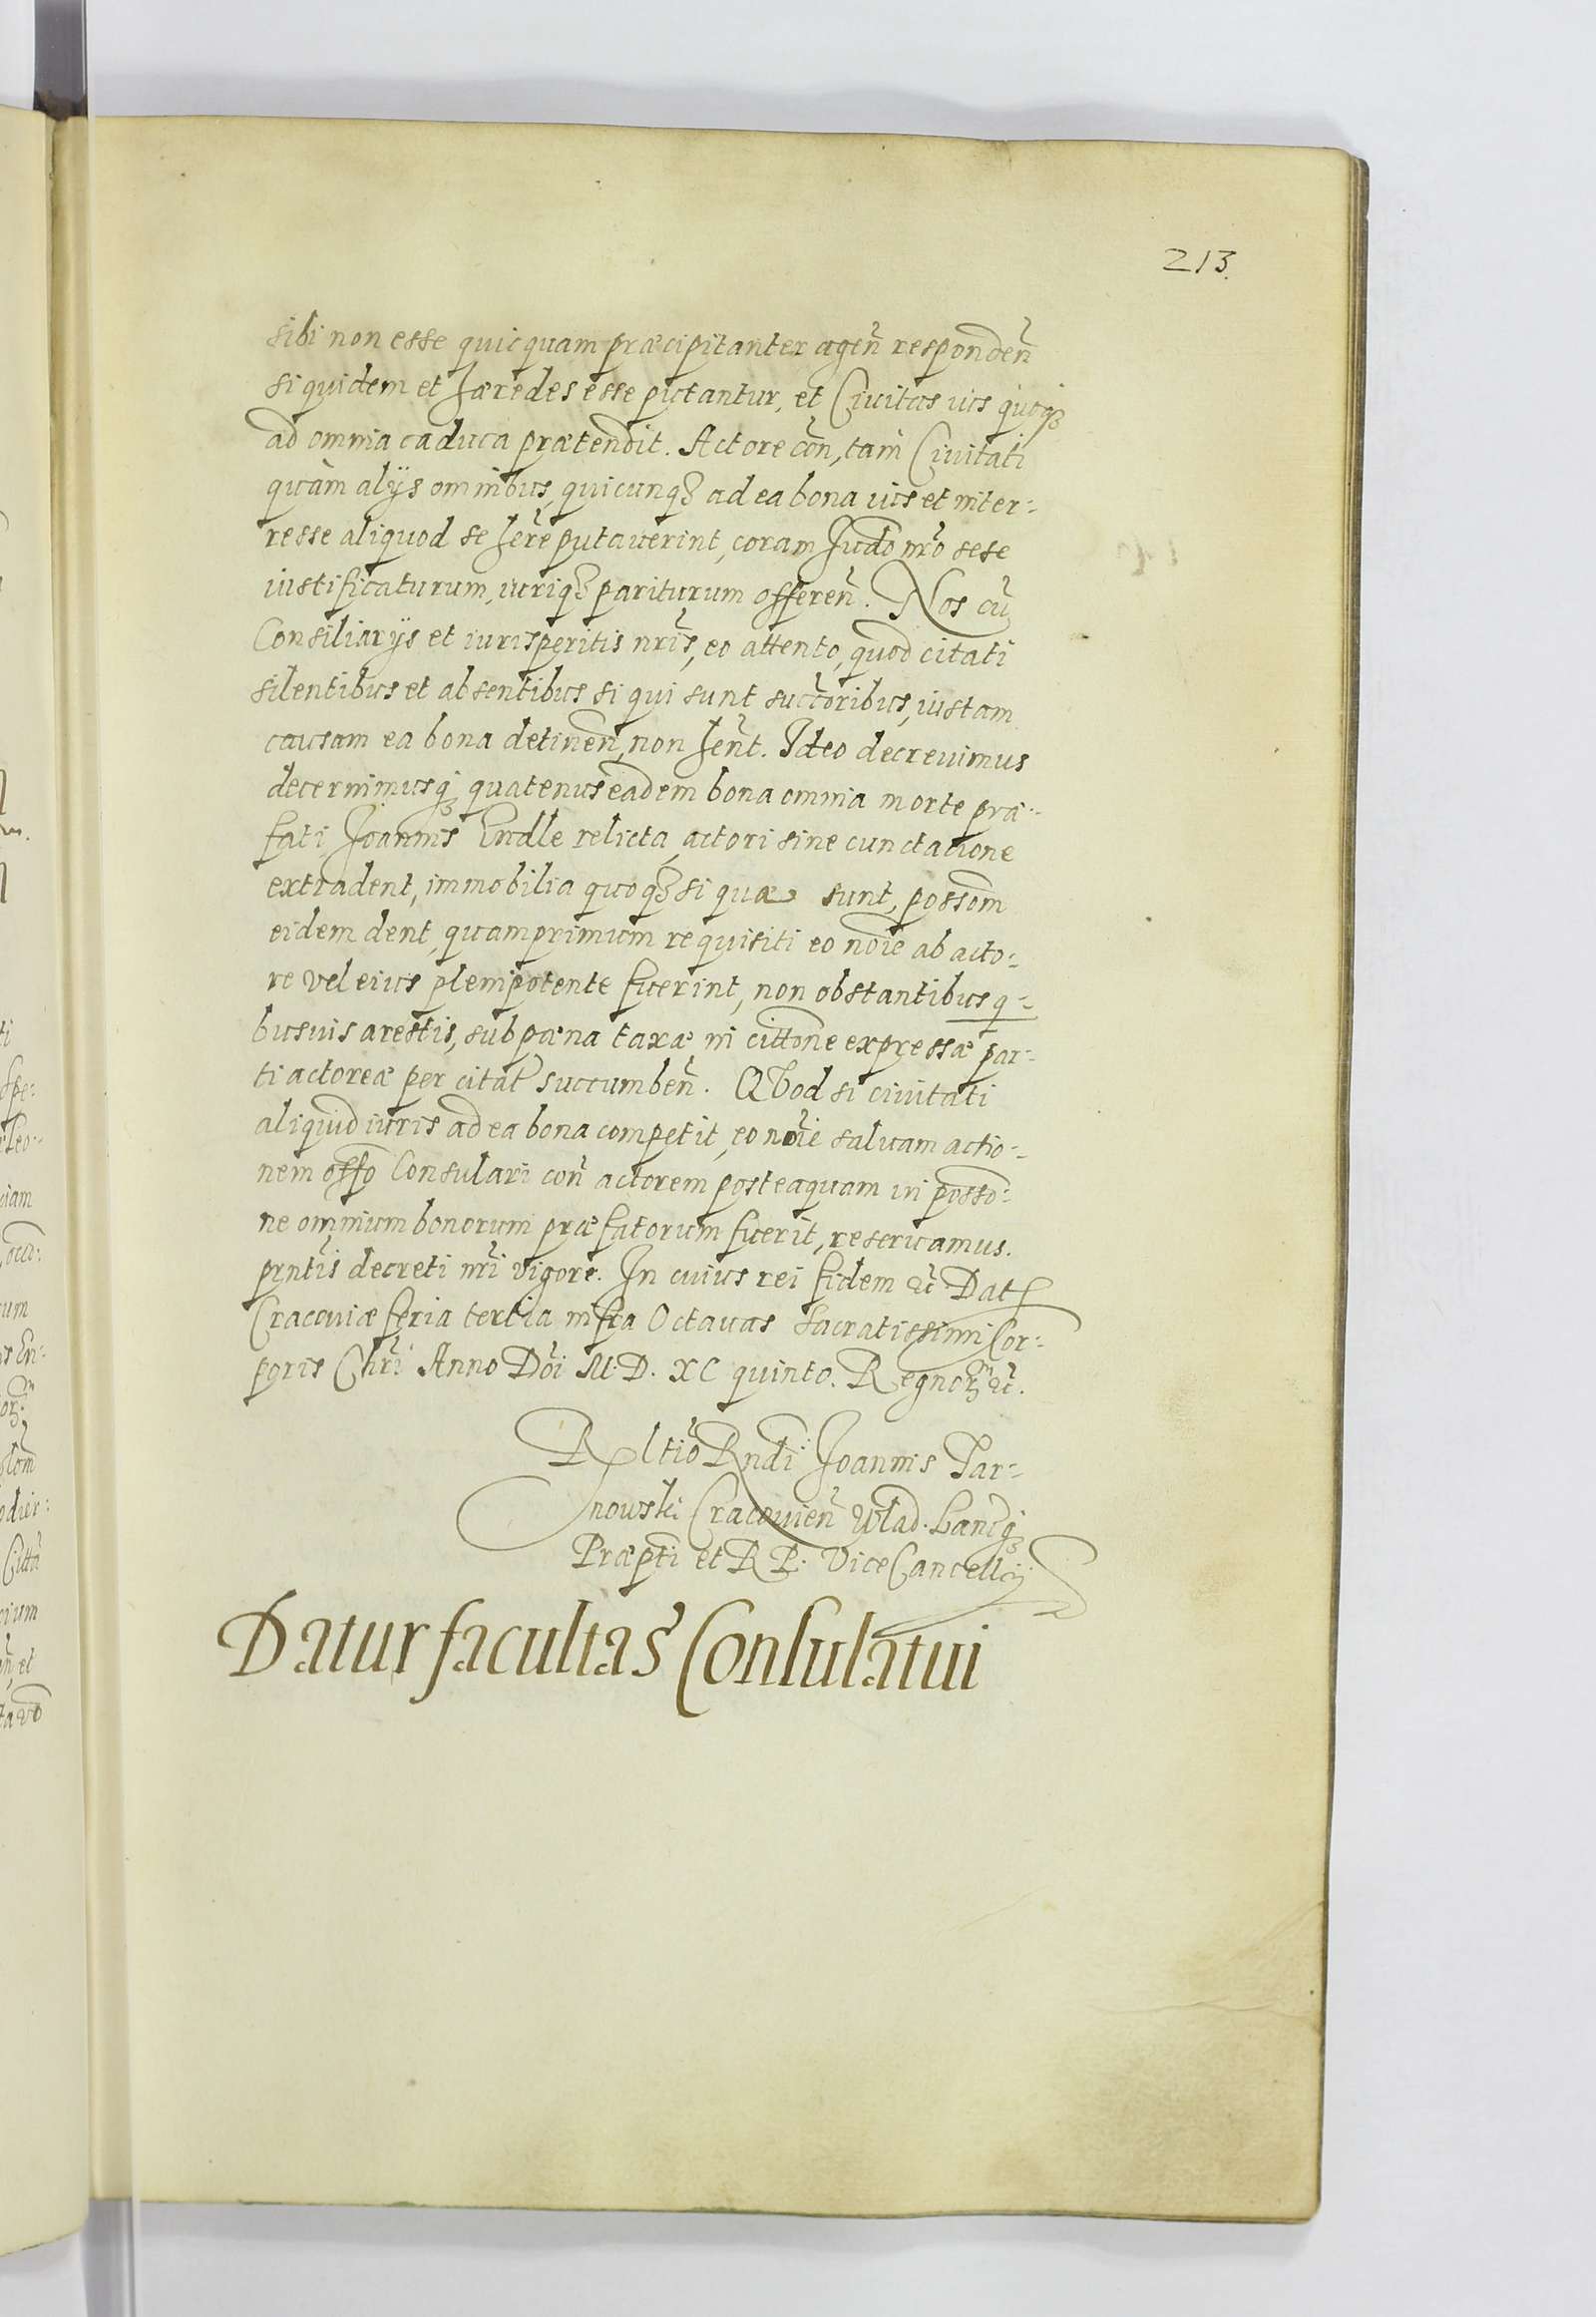 213.
sibi non esse quicquam præcipitanter agen̄ responden̄
siquidem et Hæredes esse putantur, et Ciuitas ius quoqꝫ
ad omnia caduca prætendit. Actore con̄, tam Ciuitati
quàm alijs omnibus, quicunqꝫ ad ea bona ius et inter:
resse aliquod se Her̄e putauerint, coram Iud̄o nr̄o sese
iustificaturum, iuriqꝫ pariturum offeren̄. Nos cū
Consiliarijs et iurisperitis nr̄is, eo attento, quod citati
silentibus et absentibus si qui sunt suc̄toribus, iustam
causam ea bona detinen̄, non Hen̄t. Ideo decreuimus
decernimusqꝫ quatenus eadem bona omnia morte præ:
fati Joannis Endle relicta, actori sine cunctatione
extradent, immobilia quoqꝫ si quæ sunt, possōm
eidem dent, quamprimum requisiti eo nōie ab acto:
re vel eius plenipotente fuerint, non obstantibus q:
busuis arestis, sub pœna taxæ in citt̄one expressæ par:
ti actoreæ per citat̄ succumben̄. QVod si ciuitati
aliquid iuris ad ea bona competit, eo nōie saluam actio:
nem off̄o Consulari con̄ actorem posteaquam in posso:
ne omnium bonorum præfatorum fuerit, reseruamus.
pr̄ntis decreti nr̄i vigore. In cuius rei fidem ec̄ Dat
Cracouiæ feria tertia infra Octauas Sacratissimi Cor:
poris Chr̄i Anno Dōi M.D.XC quinto. Regnorꝫ ec̄.
Rltiō Rndi Joannis Tar:
nowski Cracouien̄ Wlad. Lanc̄qꝫ
Præp̄ti et R P. ViceCancellij
Datur facultas Consulatui